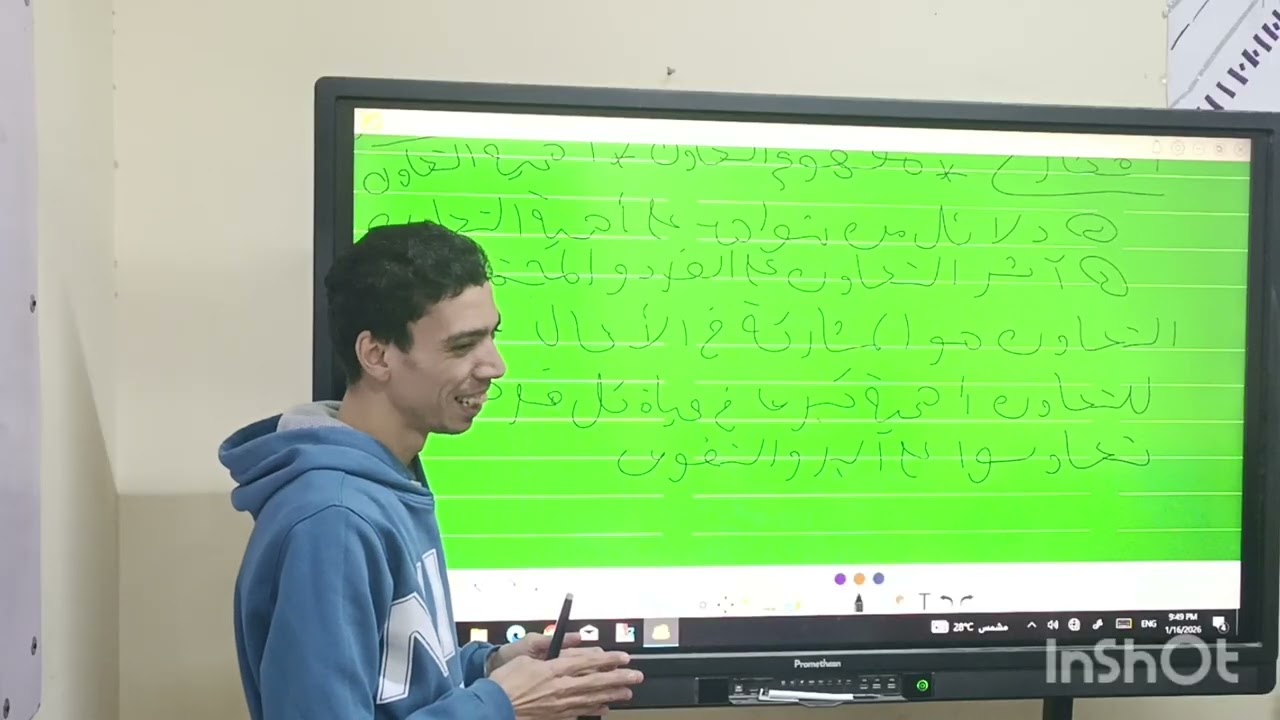 * مفهوم التعاون * أهمية التعاون
دلائل من على أهمية التعاون
أثر التعاون على الفرد والمجتمع
التعاون هو المشاركة في الأعمال
للتعاون أهمية كبرى في حياة كل فرد
تعاونوا على البر والتقوى
28°C مشمس
ENG
9:49 PM
1/16/2026
Promethean
InShOt